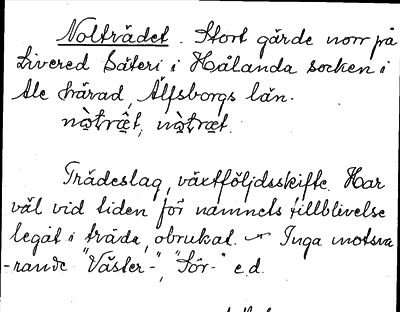 Nolträdet. Stort gärde norr på
Livered Säteri i Hålanda socken i
Ale härad, Älfsborgs län.
nọ̀træ̂t, nọ̀træt.
Trädeslag, växtföljdsskifte. Har
väl vid tiden för namnets tillblivelse
legat i träda, obrukat. Inga motsva
-rande "Väster-", "Sör-" e.d.